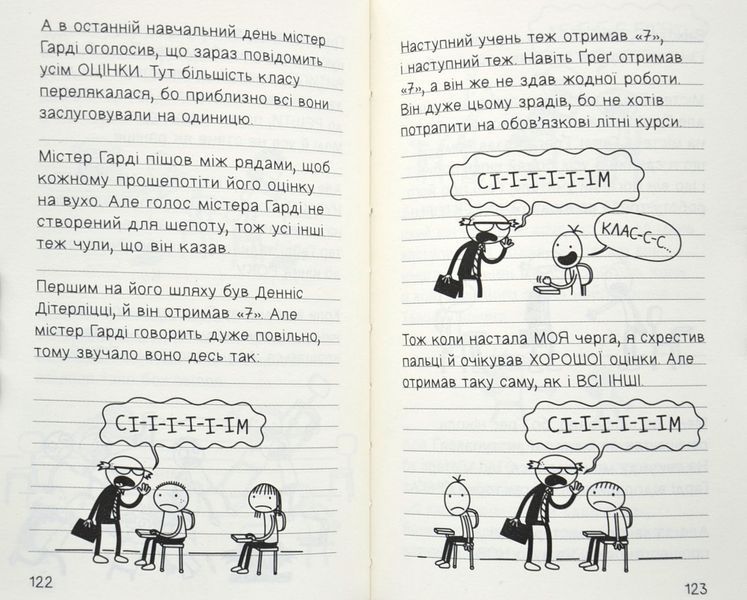 А в останній навчальний день містер
Гарді оголосив, що зараз повідомить
усім ОЦІНКИ. Тут більшість класу
перелякалася, бо приблизно всі вони
заслуговували на одиницю.
Містер Гарді пішов між рядами, щоб
кожному прошепотіти його оцінку
на вухо. Але голос містера Гарді не
створений для шепоту, тож усі інші
теж чули, що він казав.
Першим на його шляху був Денніс
Дітерліцці, й він отримав «7». Але
містер Гарді говорить дуже повільно,
тому звучало воно десь так:
СІ-І-І-І-І-ІМ
122
Наступний учень теж отримав «7»,
і наступний теж. Навіть Ґреґ отримав
«7», а він же не здав жодної роботи.
Він дуже цьому зрадів, бо не хотів
потрапити на обов'язкові літні курси.
СІ-І-І-І-І-ІМ
КЛАС-С-С...
Тож коли настала МОЯ черга, я схрестив
пальці й очікував ХОРОШОЇ оцінки. Але
отримав таку саму, як і ВСІ ІНШІ.
СІ-І-І-І-І-ІМ
123